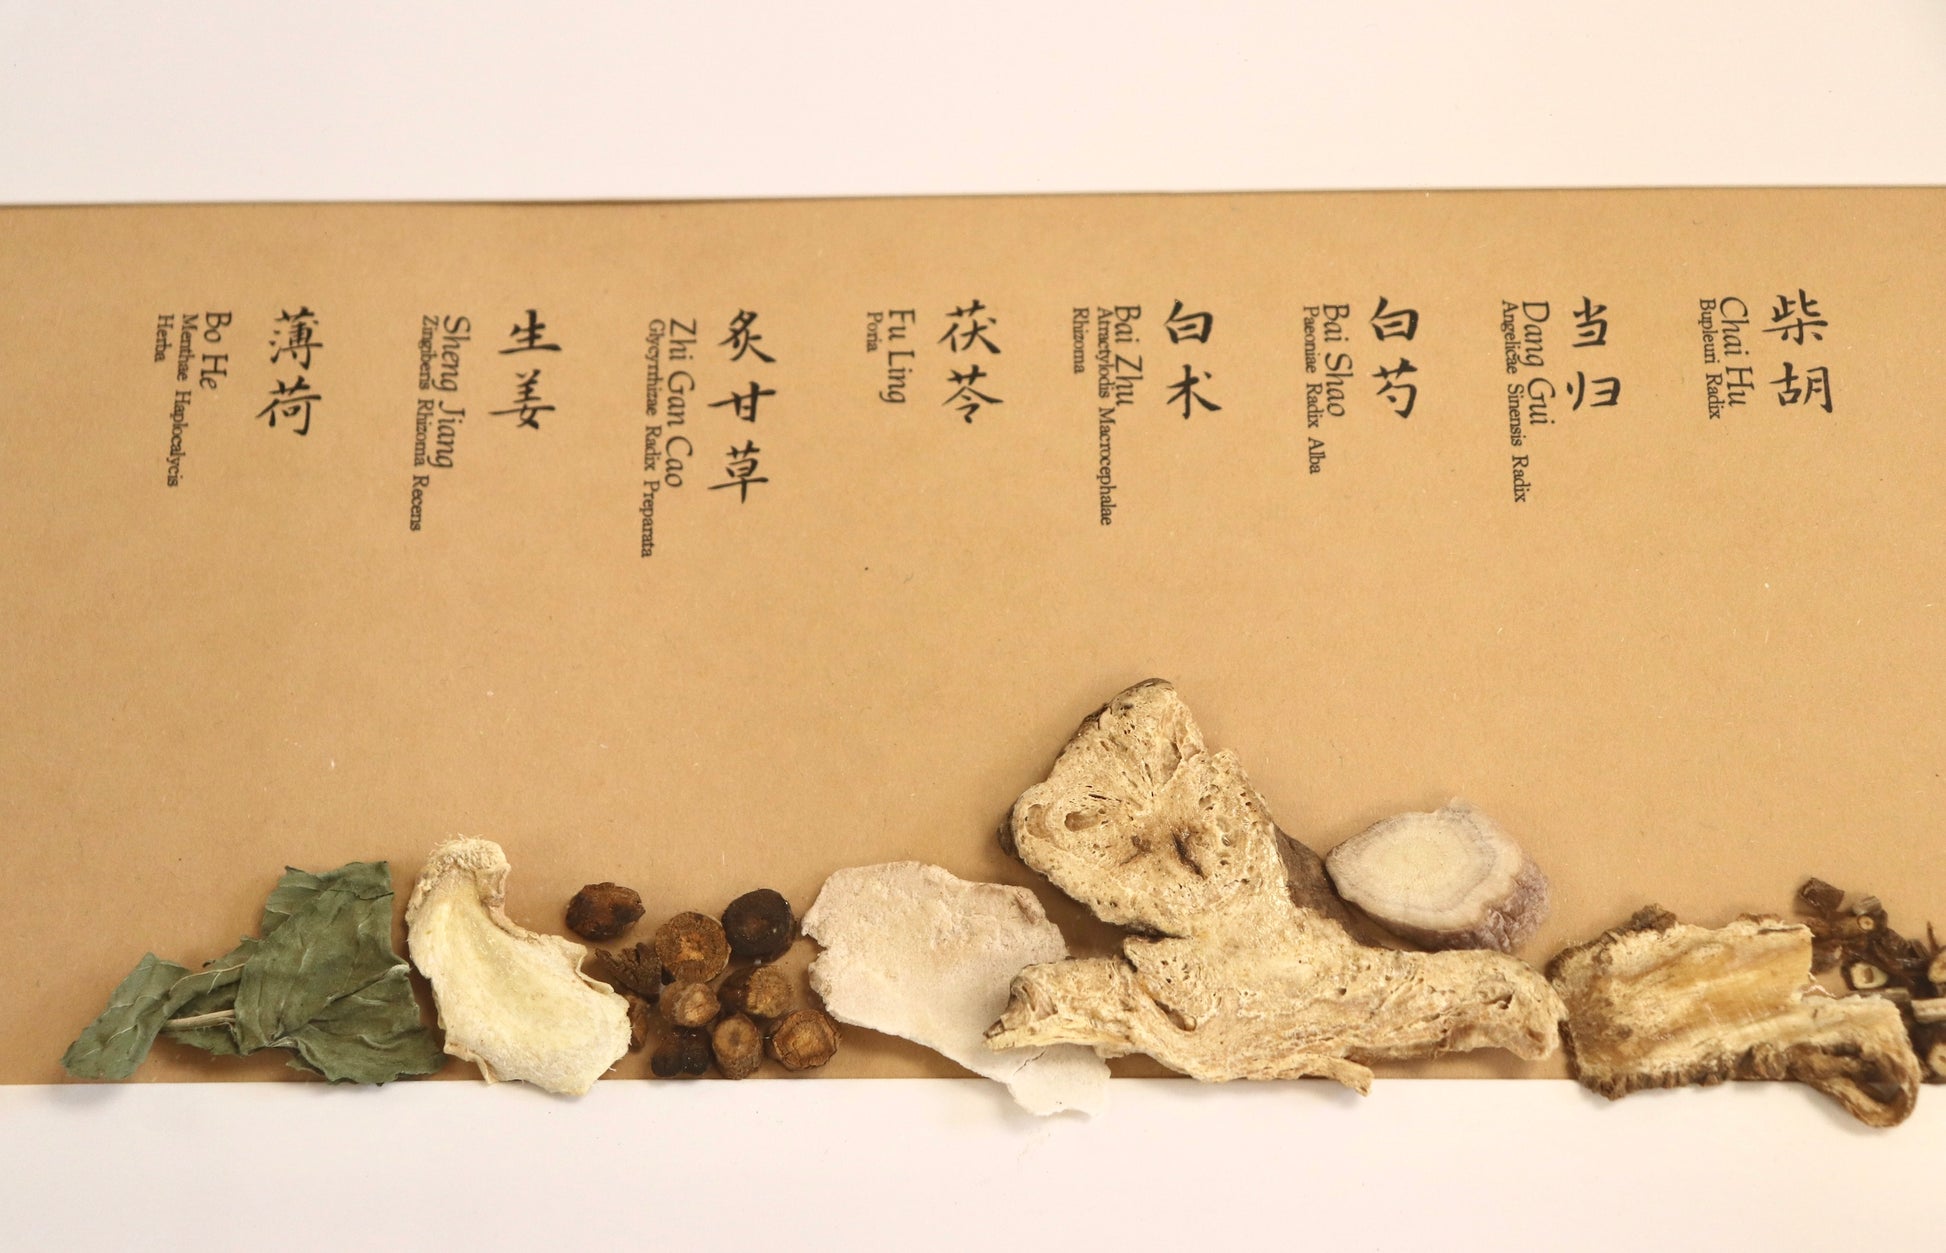 柴胡
Chai Hu
Bupleuri Radix
当归
Dang Gui
Angelicae Sinensis Radix
白芍
Bai Shao
Paeoniae Radix Alba
白术
Bai Zhu
Atractylodis Macrocephalae
Rhizoma
茯苓
Fu Ling
Poria
炙甘草
Zhi Gan Cao
Glycyrrhizae Radix Preparata
生姜
Sheng Jiang
Zingiberis Rhizoma Recens
薄荷
Bo He
Menthae Haplocalycis
Herba